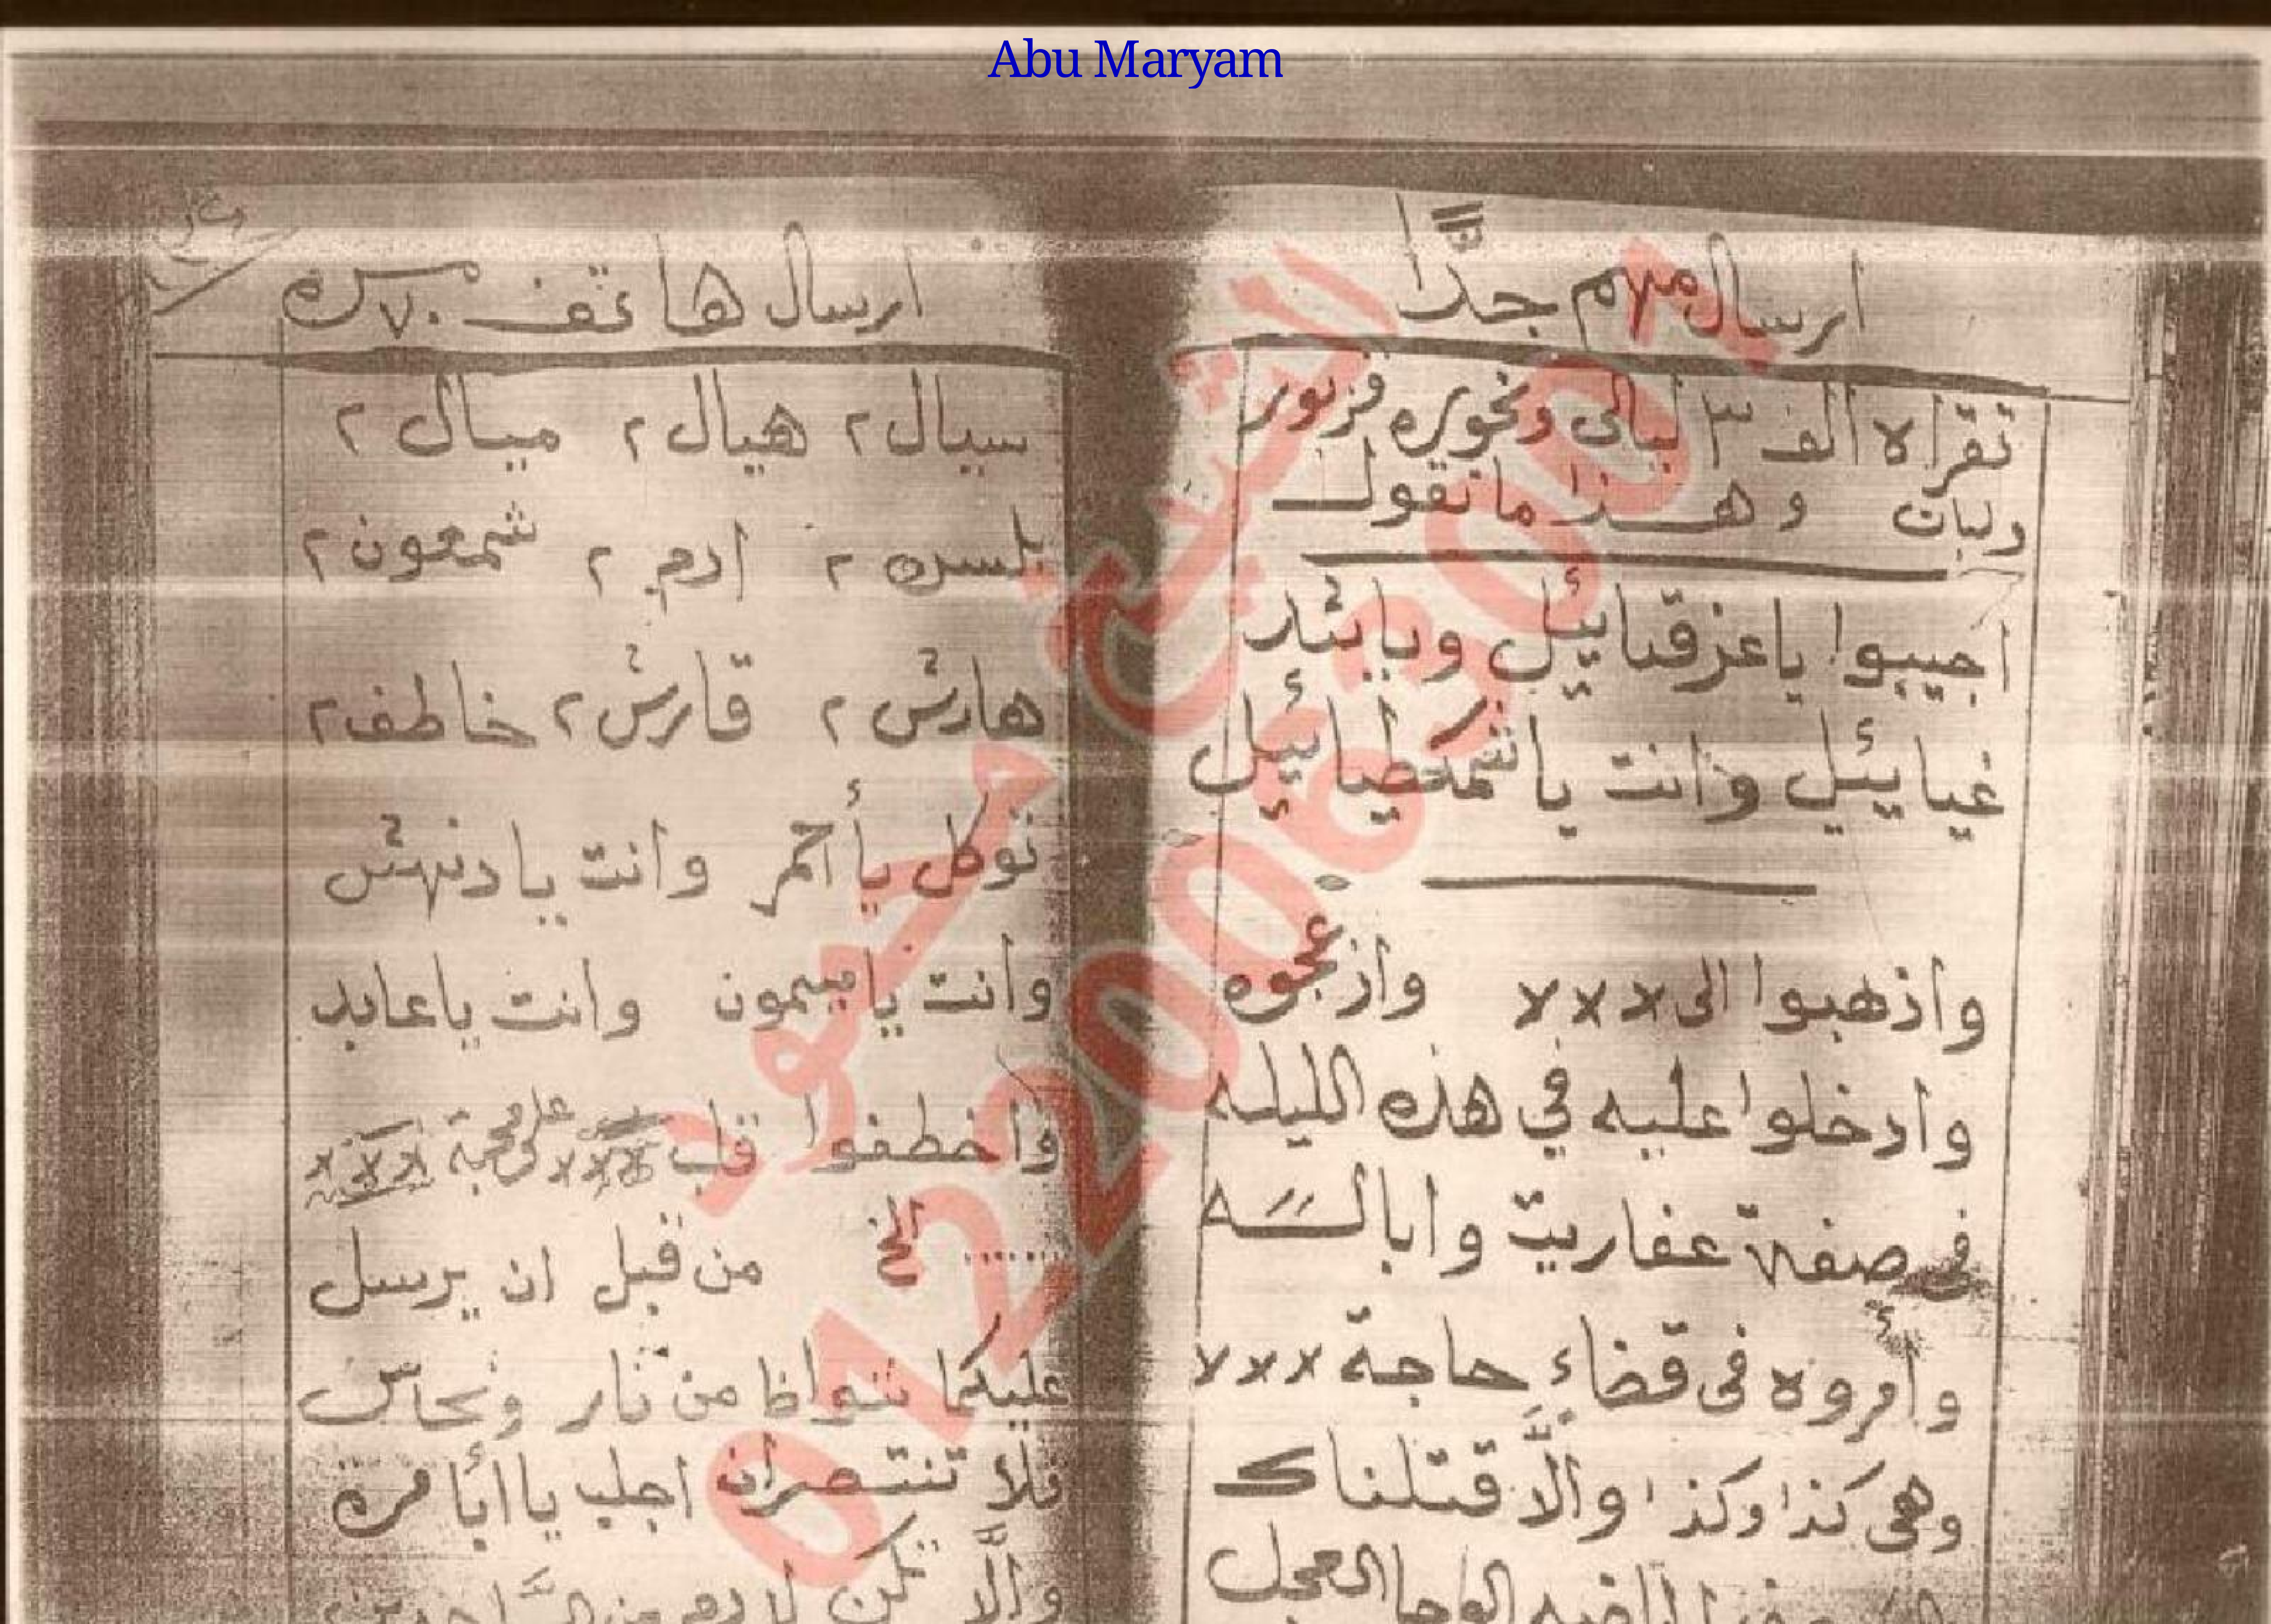 Abu Maryam
ارسال مهم جدًّا
تقراه الف ٣ ليالى وبخوره
ولبان وهذا ما تقول
اجيبوا يا عزقيائيل ويا
غيايئيل وانت يا شمكطيائيل
واذهبوا الى ××× وازعجوه
وادخلوا عليه في هذه الليله
فى صفة عفاريت وابالسه
وأمروه فى قضاء حاجة ×××
وهى كذا وكذا والَّا قتلناك
الوحا العجل
ارسال هاتف ٧٠ مره
سيال ٢ هيال ٢ ميال ٢
ادم ٢ شمعون ٢
هارش ٢ قارش ٢ خاطف ٢
توكل يا أحمر وانت يا دنهش
وانت يا ميمون وانت يا عابد
واخطفوا قلب ××× على محبة ×××
...... الخ من قبل ان يرسل
عليكما شواظا من نار ونحاس
فلا تنتصران اجلب يا أبا مرة
والَّا تكن
الشيخ محمود
01220063001